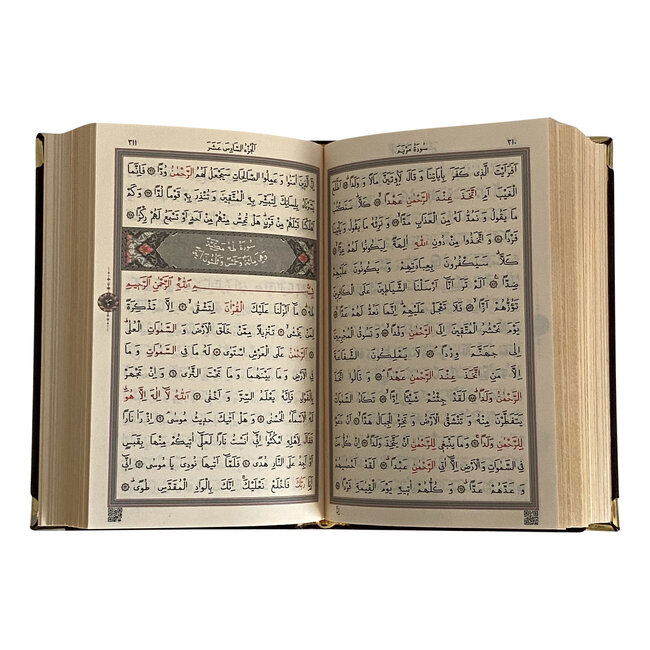 ٣١٠
سورة مريم
اَفَرَاَيْتَ الَّذ۪ي كَفَرَ بِاٰيَاتِنَا وَ قَالَ لَاُوتَيَنَّ مَالًا وَ وَلَدًا ۞ اَطَّلَعَ
الْغَيْبَ اَمِ اتَّخَذَ عِنْدَ الرَّحْمٰنِ عَهْدًا ۞ كَلَّا سَنَكْتُبُ
مَا يَقُولُ وَ نَمُدُّ لَهُ مِنَ الْعَذَابِ مَدًّا ۞ وَ نَرِثُهُ مَا يَقُولُ وَ يَأْت۪ينَا
فَرْدًا ۞ وَ اتَّخَذُوا مِنْ دُونِ اللّٰهِ اٰلِهَةً لِيَكُونُوا لَهُمْ عِزًّا ۞
كَلَّا سَيَكْفُرُونَ بِعِبَادَتِهِمْ وَ يَكُونُونَ عَلَيْهِمْ
ضِدًّا ۞ اَلَمْ تَرَ اَنَّا اَرْسَلْنَا الشَّيَاط۪ينَ عَلَى الْكَافِر۪ينَ
تَؤُزُّهُمْ اَزًّا ۞ فَلَا تَعْجَلْ عَلَيْهِمْ اِنَّمَا نَعُدُّ لَهُمْ عَدًّا ۞
يَوْمَ نَحْشُرُ الْمُتَّق۪ينَ اِلَى الرَّحْمٰنِ وَفْدًا ۞ وَ نَسُوقُ الْمُجْرِم۪ينَ
اِلٰى جَهَنَّمَ وِرْدًا ۞ لَا يَمْلِكُونَ الشَّفَاعَةَ
اِلَّا مَنِ اتَّخَذَ عِنْدَ الرَّحْمٰنِ عَهْدًا ۞ وَ قَالُوا اتَّخَذَ
الرَّحْمٰنُ وَلَدًا ۞ لَقَدْ جِئْتُمْ شَيْئًا اِدًّا ۞ تَكَادُ السَّمٰوَاتُ
يَتَفَطَّرْنَ مِنْهُ وَ تَنْشَقُّ الْاَرْضُ وَ تَخِرُّ الْجِبَالُ هَدًّا ۞ اَنْ دَعَوْا
لِلرَّحْمٰنِ وَلَدًا ۞ وَ مَا يَنْبَغ۪ي لِلرَّحْمٰنِ اَنْ يَتَّخِذَ وَلَدًا ۞ اِنْ كُلُّ مَنْ
فِي السَّمٰوَاتِ وَ الْاَرْضِ اِلَّا اٰتِي الرَّحْمٰنِ عَبْدًا ۞ لَقَدْ اَحْصٰيهُمْ
وَ عَدَّهُمْ عَدًّا ۞ وَ كُلُّهُمْ اٰت۪يهِ يَوْمَ الْقِيٰمَةِ فَرْدًا ۞
الجزء السادس عشر
٣١١
اِنَّ الَّذ۪ينَ اٰمَنُوا وَ عَمِلُوا الصَّالِحَاتِ سَيَجْعَلُ لَهُمُ الرَّحْمٰنُ وُدًّا ۞ فَاِنَّمَا
يَسَّرْنَاهُ بِلِسَانِكَ لِتُبَشِّرَ بِهِ الْمُتَّق۪ينَ وَ تُنْذِرَ بِهِ قَوْمًا لُدًّا ۞ وَ كَمْ
اَهْلَكْنَا قَبْلَهُمْ مِنْ قَرْنٍ هَلْ تُحِسُّ مِنْهُمْ مِنْ اَحَدٍ اَوْ تَسْمَعُ لَهُمْ رِكْزًا ۞
سورة طه مكية
وهي مائة وخمس وثلثون اية
بِسْمِ اللّٰهِ الرَّحْمٰنِ الرَّح۪يمِ
طٰهٰ ۞ مَا اَنْزَلْنَا عَلَيْكَ الْقُرْاٰنَ لِتَشْقٰى ۞ اِلَّا تَذْكِرَةً
لِمَنْ يَخْشٰى ۞ تَنْز۪يلًا مِمَّنْ خَلَقَ الْاَرْضَ وَ السَّمٰوَاتِ الْعُلٰى ۞
اَلرَّحْمٰنُ عَلَى الْعَرْشِ اسْتَوٰى ۞ لَهُ مَا فِي السَّمٰوَاتِ وَ مَا
فِي الْاَرْضِ وَ مَا بَيْنَهُمَا وَ مَا تَحْتَ الثَّرٰى ۞ وَ اِنْ تَجْهَرْ
بِالْقَوْلِ فَاِنَّهُ يَعْلَمُ السِّرَّ وَ اَخْفٰى ۞ اَللّٰهُ لَا اِلٰهَ اِلَّا هُوَ
لَهُ الْاَسْمَاءُ الْحُسْنٰى ۞ وَ هَلْ اَتٰيكَ حَد۪يثُ مُوسٰى ۞ اِذْ رَاٰ نَارًا
فَقَالَ لِاَهْلِهِ امْكُثُوا اِنّ۪ي اٰنَسْتُ نَارًا لَعَلّ۪ي اٰت۪يكُمْ مِنْهَا بِقَبَسٍ
اَوْ اَجِدُ عَلَى النَّارِ هُدًى ۞ فَلَمَّا اَتٰيهَا نُودِيَ يَا مُوسٰى ۞ اِنّ۪ي
اَنَا رَبُّكَ فَاخْلَعْ نَعْلَيْكَ اِنَّكَ بِالْوَادِ الْمُقَدَّسِ طُوًى ۞